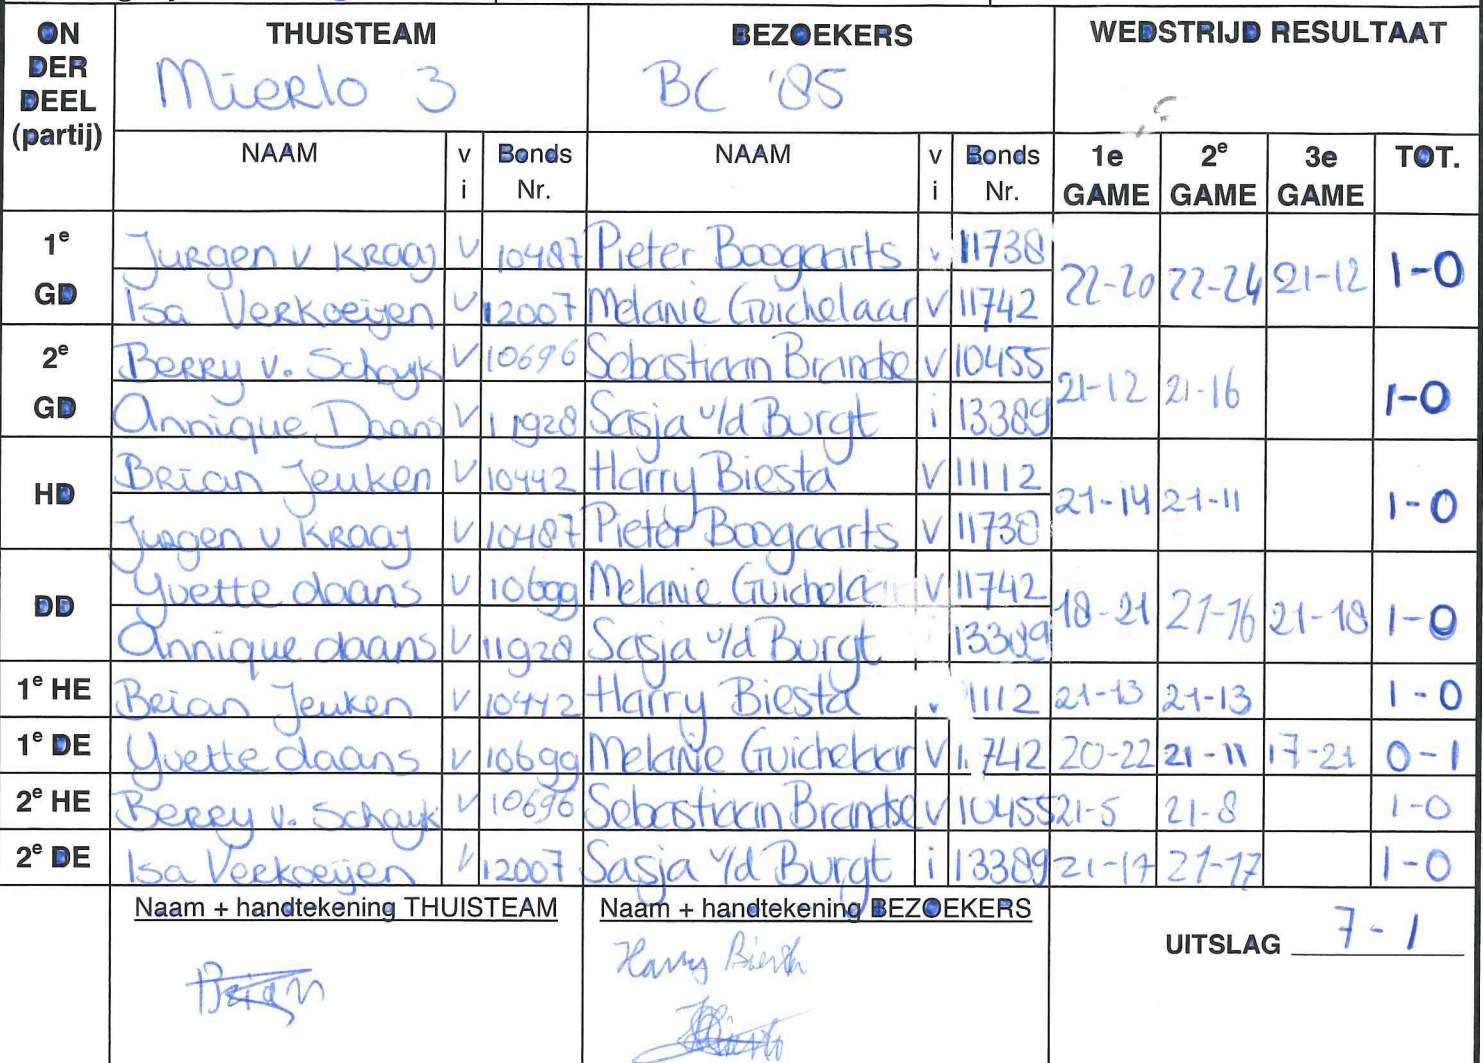 ON DER DEEL (partij) THUISTEAM BEZOEKERS WEDSTRIJD RESULTAAT
Mierlo 3 BC '85
NAAM v i Bonds Nr. NAAM v i Bonds Nr. 1e GAME 2e GAME 3e GAME TOT.
1e GD Jurgen v Kraaij v 10487 Pieter Boogaarts v 11738 22-20 22-24 21-12 1-0
Isa Verkoeijen v 12007 Melanie Guichelaar v 11742
2e GD Berry v. Schayk v 10696 Sebastiaan Brandse v 10455 21-12 21-16 1-0
Annique Daans v 11928 Sasja v/d Burgt i 13389
HD Brian Jeuken v 10442 Harry Biesta v 11112 21-14 21-11 1-0
Jurgen v Kraaij v 10487 Pieter Boogaarts v 11738
DD Yvette daans v 10699 Melanie Guichelaar v 11742 18-21 21-16 21-18 1-0
Annique daans v 11928 Sasja v/d Burgt 13389
1e HE Brian Jeuken v 10442 Harry Biesta v 1112 21-13 21-13 1-0
1e DE Yvette daans v 10699 Melanie Guichelaar v 11742 20-22 21-11 17-21 0-1
2e HE Berry v. Schayk v 10696 Sebastiaan Brandse v 10455 21-5 21-8 1-0
2e DE Isa Verkoeijen v 12007 Sasja v/d Burgt i 13389 21-17 21-17 1-0
Naam + handtekening THUISTEAM Naam + handtekening BEZOEKERS
UITSLAG 7-1
Brian Harry Biesta